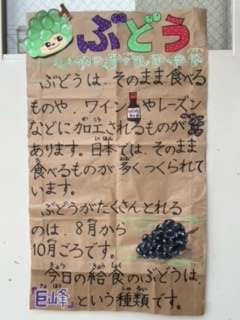 ぶどう
ぶどうは、そのまま食べる
ものや、ワインやレーズン
などに加工されるものが
あります。日本では、そのまま
食べるものが多くつくられて
います。
ぶどうがたくさんとれる
のは、8月から
10月ごろです。
今日の給食のぶどうは
「巨峰」という種類です。